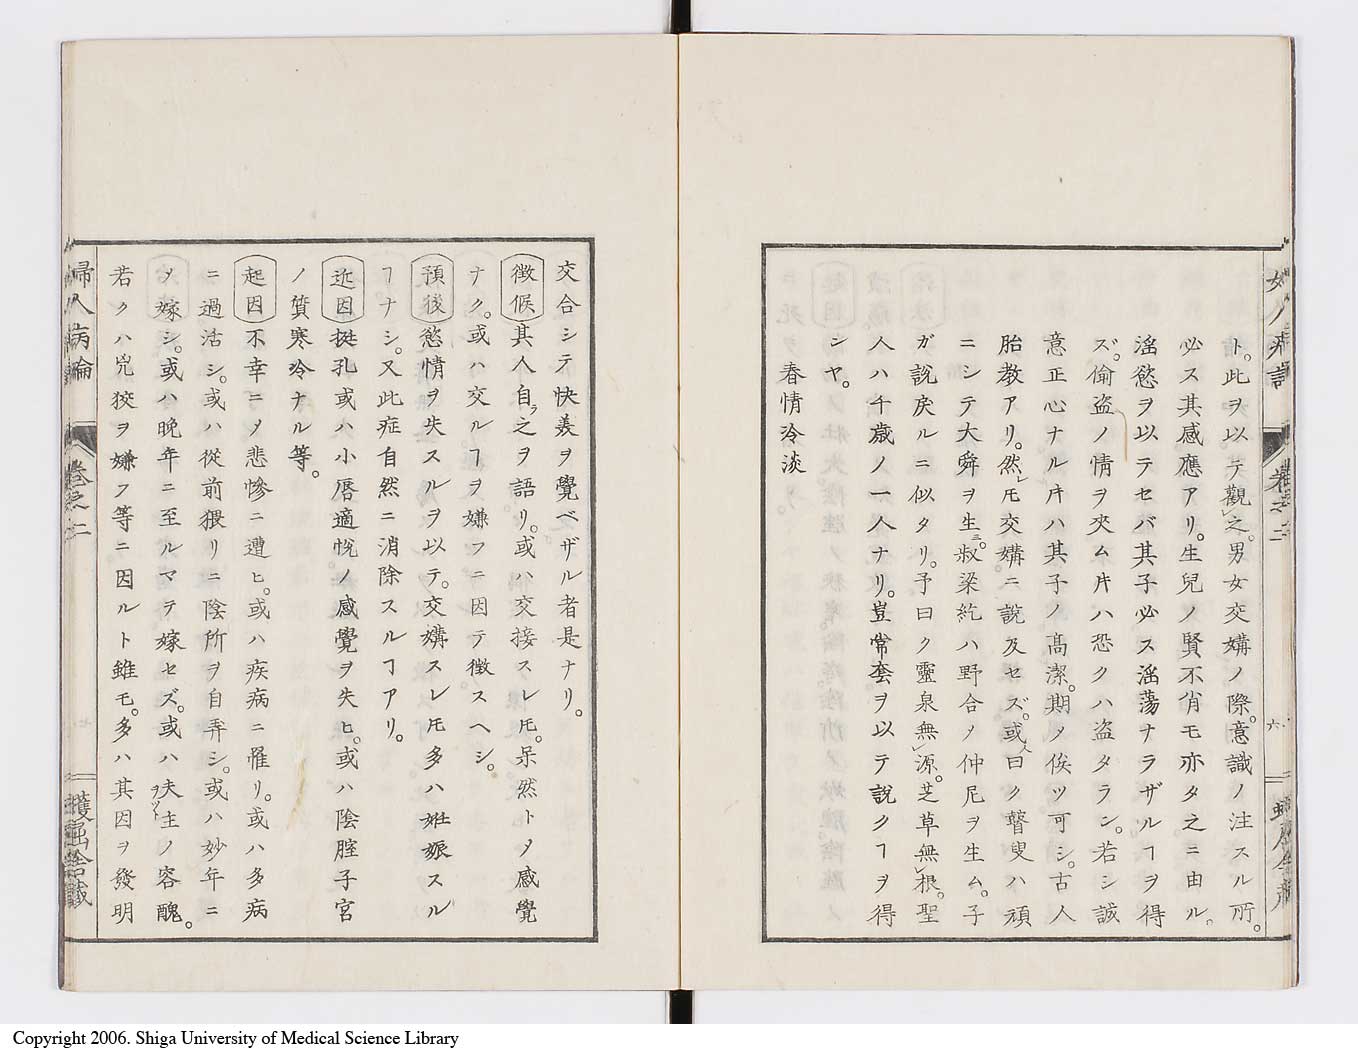 ト。此ヲ以テ觀レ之。男女交媾ノ際。意識ノ注スル所。
必ス其感應アリ。生兒ノ賢不肖モ亦タ之ニ由ル。
淫慾ヲ以テセバ其子必ス淫蕩ナラザルヿヲ得
ズ。偷盗ノ情ヲ夾ム𪜈ハ恐クハ盗タラン。若シ誠
意正心ナル𪜈ハ其子ノ高潔。期〆俟ツ可シ。古人
胎教アリ。然レ𪜈交媾ニ説及セズ。或人曰ク瞽叟ハ頑
ニシテ大舜ヲ生ミ。叔梁紇ハ野合〆仲尼ヲ生ム。子
ガ説戾ルニ似タリ。予曰ク靈泉無レ源。芝草無レ根。聖
人ハ千歳ノ一人ナリ。豈常套ヲ以テ説クヿヲ得
シヤ。
春情冷淡
交合シテ快美ヲ覺ベザル者是ナリ。
徴候 其人自ラ之ヲ語リ。或ハ交接スレ𪜈。呆然ト〆感覺
ナク。或ハ交ルヿヲ嫌フニ因テ徴スヘシ。
預後 慾情ヲ失スルヲ以テ。交媾スレ𪜈多ハ妊娠スル
ヿナシ。又此症自然ニ消除スルヿアリ。
近因 挺孔或ハ小唇適悅ノ感覺ヲ失ヒ。或ハ陰腟子宮
ノ質寒冷ナル等。
起因 不幸ニ〆悲慘ニ遭ヒ。或ハ疾病ニ罹リ。或ハ多病
ニ過活シ。或ハ從前猥リニ陰所ヲ自弄シ。或ハ妙年ニ
〆嫁シ。或ハ晩年ニ至ルマテ嫁セズ。或ハ夫主ヲットノ容醜。
若クハ兇狡ヲ嫌フ等ニ因ルト雖モ。多ハ其因ヲ發明
婦人病論
卷之二
七
六